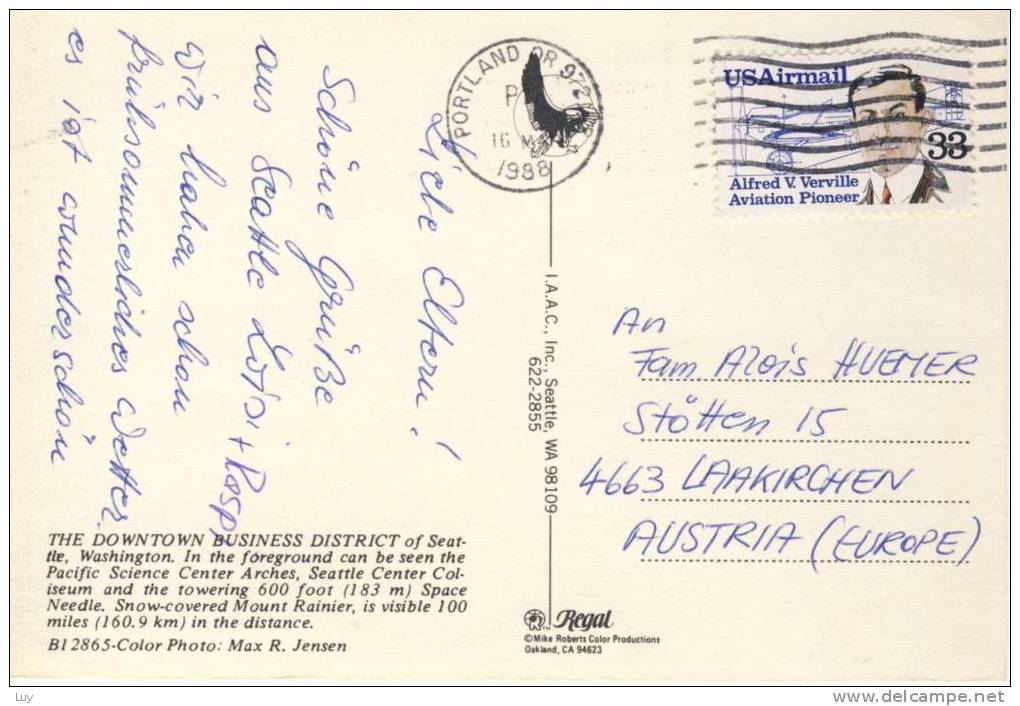 Liebe Eltern!
Schöne Grüße
aus Seattle Luisi + Raspi
wir haben schon
frühsommerliches Wetter.
es ist wunderschön
PORTLAND OR 972
P
16 MA
1988
USAirmail
33
Alfred V. Verville
Aviation Pioneer
An
Fam Alois HUEMER
Stötten 15
4663 LAAKIRCHEN
AUSTRIA (EUROPE)
I.A.A.C., Inc., Seattle, WA 98109
622-2855
THE DOWNTOWN BUSINESS DISTRICT of Seat-
tle, Washington. In the foreground can be seen the
Pacific Science Center Arches, Seattle Center Col-
iseum and the towering 600 foot (183 m) Space
Needle. Snow-covered Mount Rainier, is visible 100
miles (160.9 km) in the distance.
B12865-Color Photo: Max R. Jensen
Regal
©Mike Roberts Color Productions
Oakland, CA 94623
Luy
www.delcampe.net